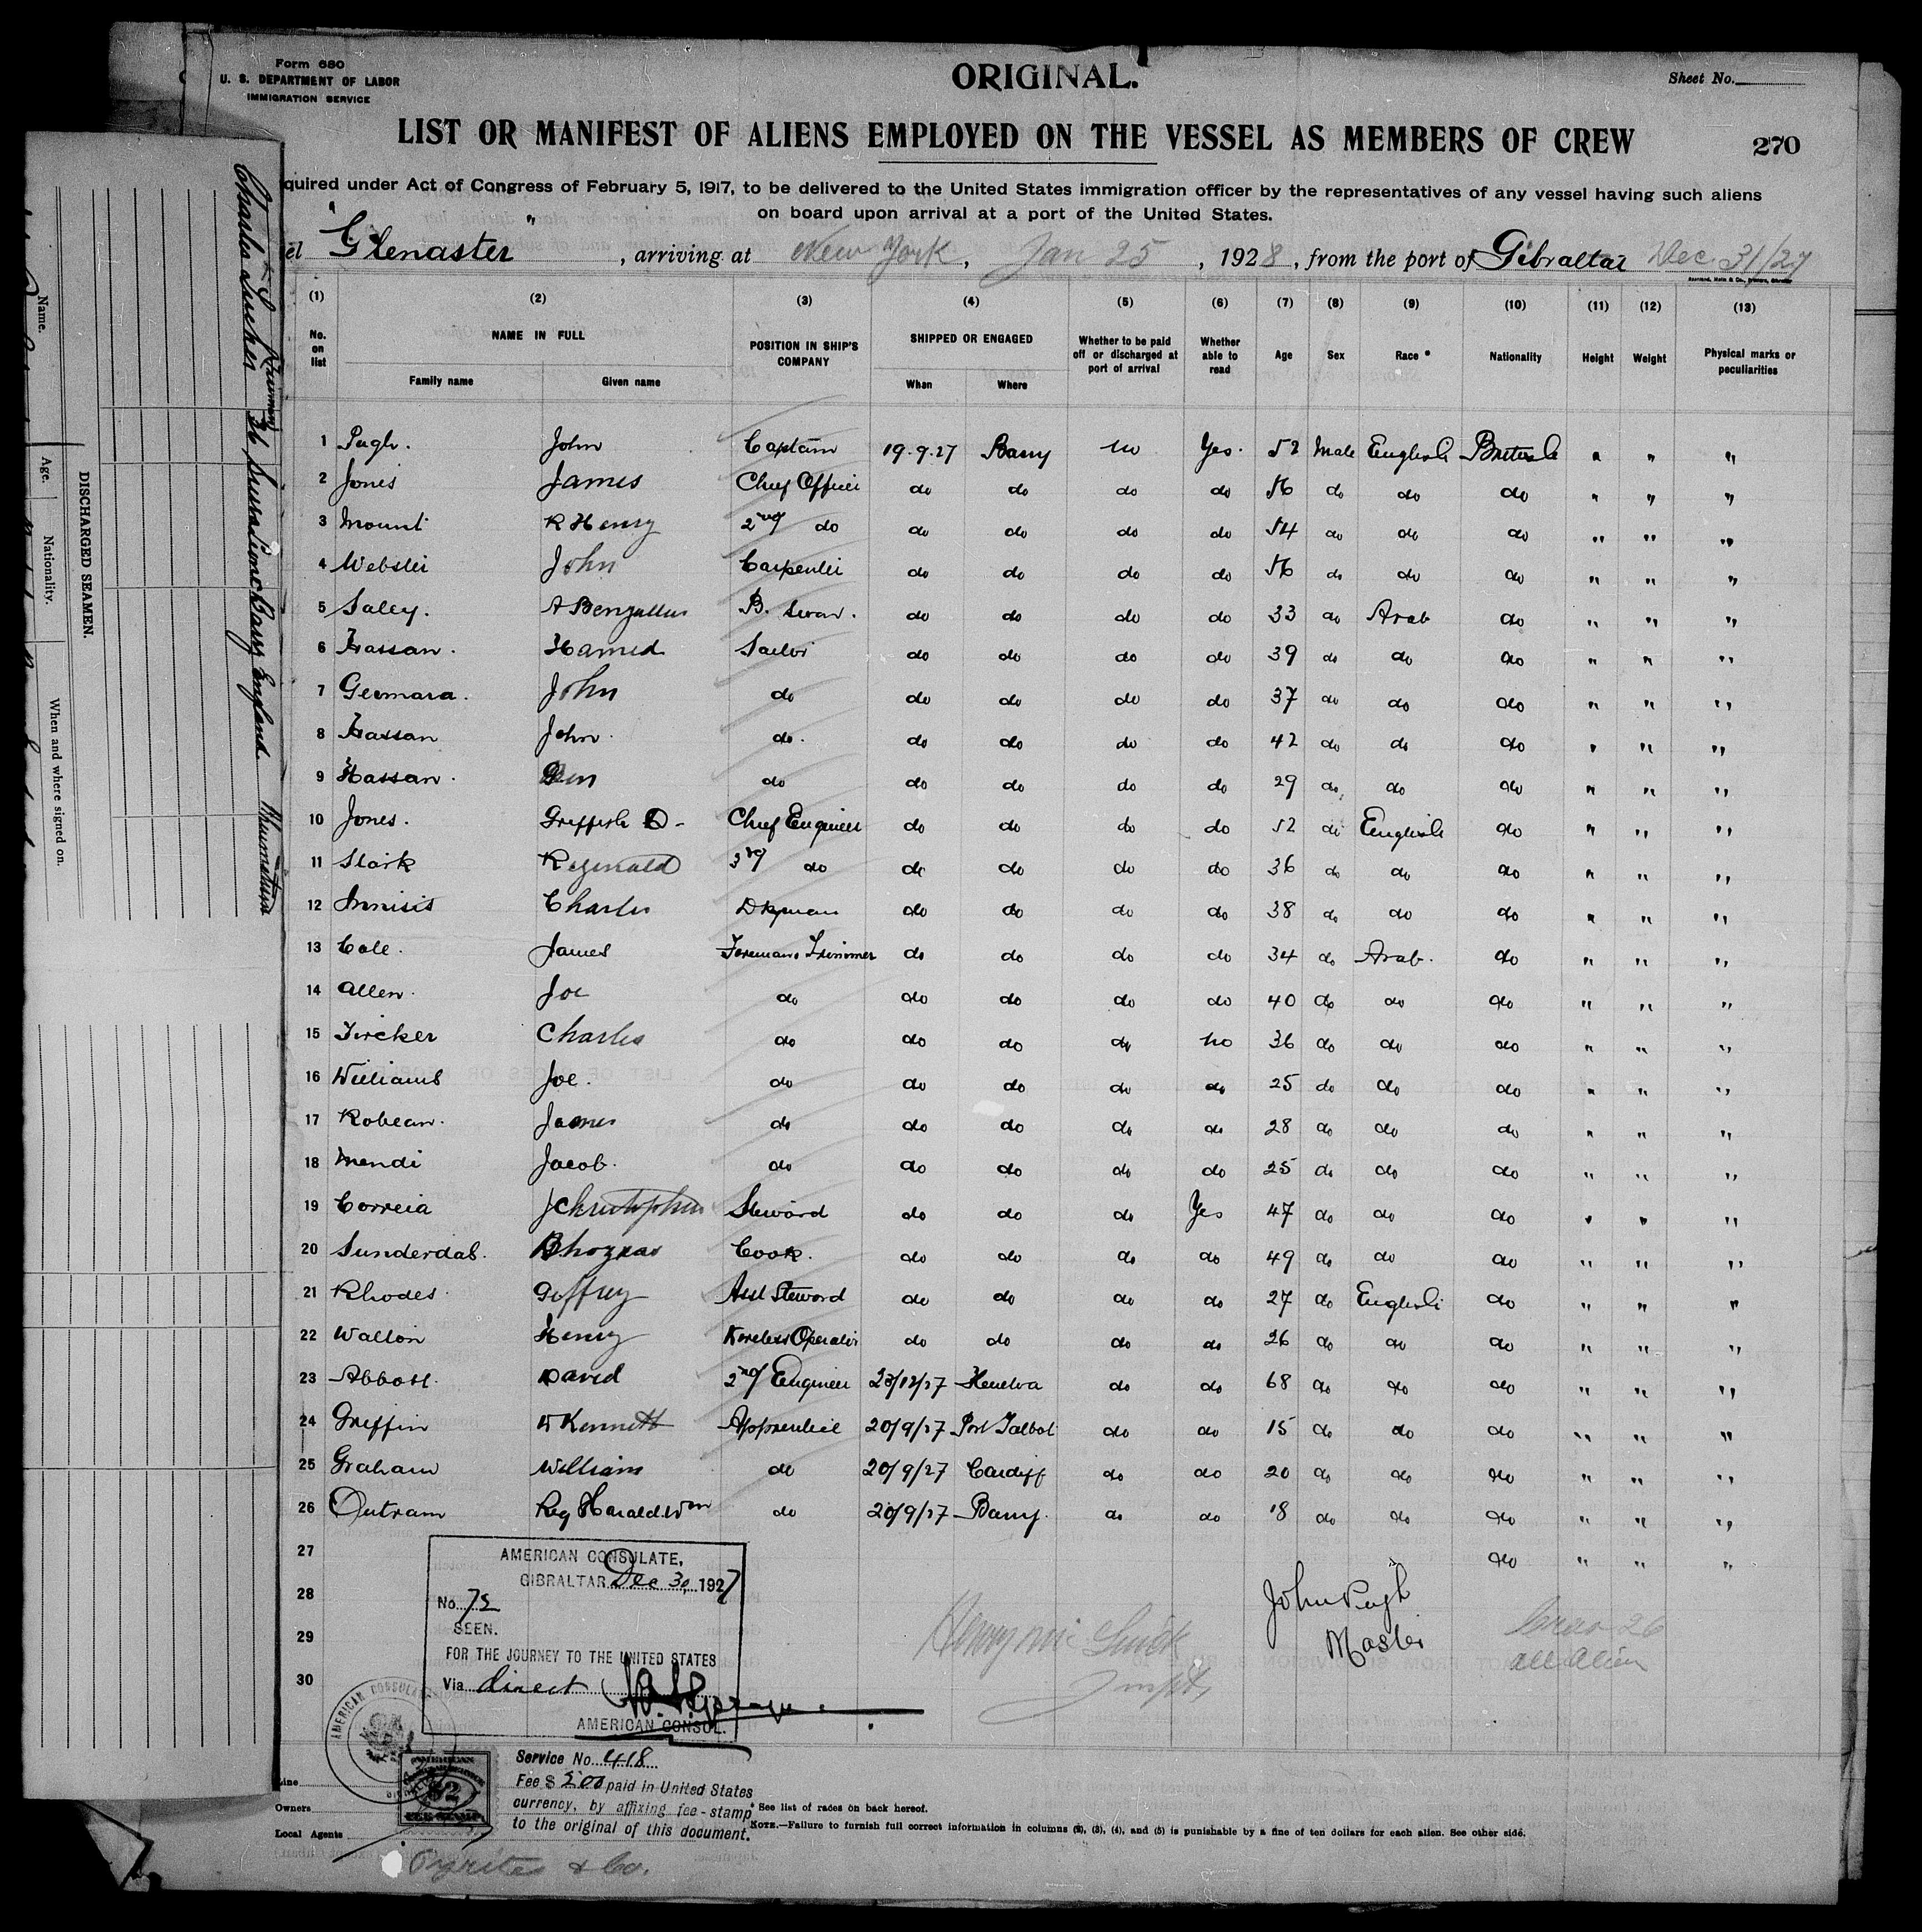 Form 680
U. S. DEPARTMENT OF LABOR
IMMIGRATION SERVICE
ORIGINAL.
Sheet No.
LIST OR MANIFEST OF ALIENS EMPLOYED ON THE VESSEL AS MEMBERS OF CREW
270
quired under Act of Congress of February 5, 1917, to be delivered to the United States immigration officer by the representatives of any vessel having such aliens
on board upon arrival at a port of the United States.
el "Glenaster", arriving at New York, Jan 25, 1928, from the port of Gibraltar Dec. 31/27
(1) (2) (3) (4) (5) (6) (7) (8) (9) (10) (11) (12) (13)
No. on list NAME IN FULL POSITION IN SHIP'S COMPANY SHIPPED OR ENGAGED Whether to be paid off or discharged at port of arrival Whether able to read Age Sex Race * Nationality Height Weight Physical marks or peculiarities
Family name Given name When Where
1 Pugh. John Captain 19.9.27 Barry no Yes. 52 Male English British " " "
2 Jones James Chief Officer do do do do 56 do do do " " "
3 Mount R Henry 2nd do do do do do 54 do do do " " "
4 Webster John Carpenter do do do do 56 do do do " " "
5 Saley. A B. Swan. do do do do 33 do Arab do " " "
6 Hassan. Hamed Sailor do do do do 39 do do do " " "
7 Geomara. John do do do do do 37 do do do " " "
8 Hassan John. do. do do do do 42 do do do " " "
9 Hassan. Ben do do do do do 29 do do do " " "
10 Jones. Griffith D- Chief Engineer do do do do 52 do English do " " "
11 Stark Reginald 3rd do do do do do 36 do do do " " "
12 Charles Dkyman do do do do 38 do do do " " "
13 Cole. James Firemans Trimmer do do do do 34 do Arab. do " " "
14 Allen. Joe do do do do do 40 do do do " " "
15 Tircker Charles do do do do no 36 do do do " " "
16 Williams Joe. do do do do do 25 do do do " " "
17 Robean. James do do do do do 28 do do do " " "
18 Mendi Jacob. do do do do do 25 do do do " " "
19 Correia J Christopher Steward do do do Yes 47 do do do " " "
20 Sunderdal. Cook. do do do do 49 do do do " " "
21 Rhodes Geffrey Asst Steward do do do do 27 do English do " " "
22 Walton Henry Wireless Operator do do do do 26 do do do " " "
23 Abbott. David 2nd Engineer 23/12/27 Huelva do do 68 do do do " " "
24 Griffin W Kenneth Apprentice 20/9/27 Port Talbot do do 15 do do do " " "
25 Graham William do 20/9/27 Cardiff do do 20 do do do " " "
26 Outram Reg Harald Wm do 20/9/27 Barry. do do 18 do do do " " "
27 do " " "
28
29
30
AMERICAN CONSULATE,
GIBRALTAR Dec 30, 1927
No. 75
SEEN.
FOR THE JOURNEY TO THE UNITED STATES
Via direct
AMERICAN CONSUL.
John Pugh
Master
Crew 26
all Alien
AMERICAN CONSULATE
Service No. 418
Fee $ 2.00 paid in United States
currency, by affixing fee-stamp
to the original of this document.
Line
Owners
Local Agents
Pyrites & Co.
* See list of races on back hereof.
NOTE.—Failure to furnish full correct information in columns (2), (3), (4), and (5) is punishable by a fine of ten dollars for each alien. See other side.
DISCHARGED SEAMEN.
Name.
Age.
Nationality.
When and where signed on.
Charles
36
Barry England.